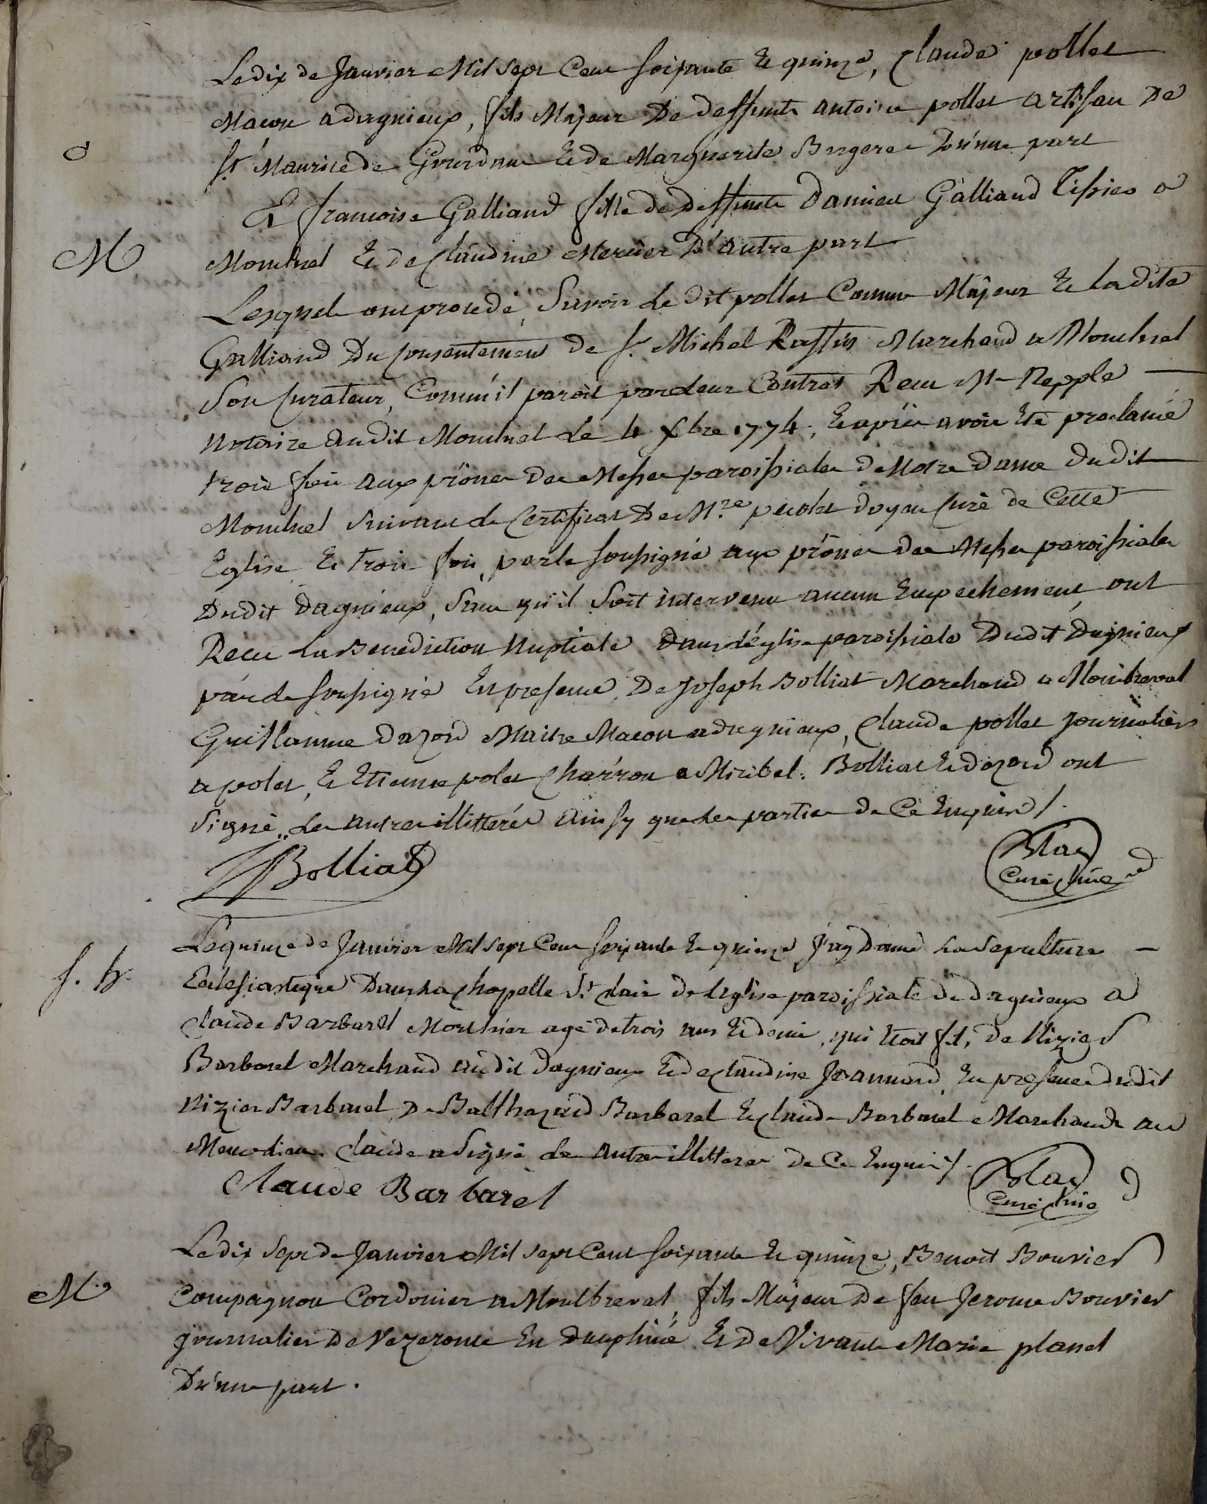 Le dix de Janvier Mil sept Cent soixante et quinze, Claude pollet
Macon a dagnieux, fils Majeur De deffunt antoine pollet artisan De
St. Maurice de Gourdan Et de Marguerite Bergere D'une part
Et francoise Galliand fille de deffunt Damien Galliand Tissier a
M
Montluel Et de Claudine Mercier D'autre part
Lesquels ont procede, Savoir Le dit pollet Comme Majeur Et la dite
Galliand Du Consentement de Sr. Michel Raffin Marchand a Montluel
Son Curateur, Comm'il paroit par leur Contrat Recu Me Repple
Notaire au dit Montluel Le 4 Xbre 1774, Et après avoir Eté proclamé
trois fois aux prônes des Messes paroissiales de Notre Dame du dit
Montluel suivant le Certificat De Mre. doyen Curé de Cette
Eglise Et trois fois par le soussigné aux prônes des Messes paroissiales
Du dit dagnieux, sans qu'il soit intervenu aucun Empechement, ont
Recu La Benediction Nuptiale Dans l'église paroissiale Du dit Dagnieux
par le soussigné En presence De Joseph Bolliat Marchand a Montbreval
Guillaume dazord Maitre Macon a dagnieux, Claude pollet journalier
a polet, Et Etienne polet Charron a Miribel. Bolliat Et dazord ont
Signé, les autres illitterés ainsy que les parties de Ce Enquis /.
Bolliat
Curé
S. B.
Le quinze de Janvier Mil sept Cent soixante Et quinze J'ay Donné La sepulture
Eclesiastique Dans La Chapelle St. Clair de l'église paroissiale de dagnieux a
Claude Barbarel agé de trois ans Et demie, qui Etoit fils de Nizier
Barbarel Marchand au dit dagnieux Et de Claudine Joannard, En presence du dit
Nizier Barbarel, De Balthazard Barbarel Et Claude Barbarel Marchands au
Claude a Signé les autres illitteres de Ce Enquis /.
Claude Barbarel
Curé
M
Le dix sept de Janvier Mil sept Cent soixante Et quinze, Benoit Bouvier
Compagnon Cordonier a Montbreval, fils Majeur De feu Jerome Bouvier
journalier De Vezeronce En dauphiné Et De Vivante Marie planet
D'une part.